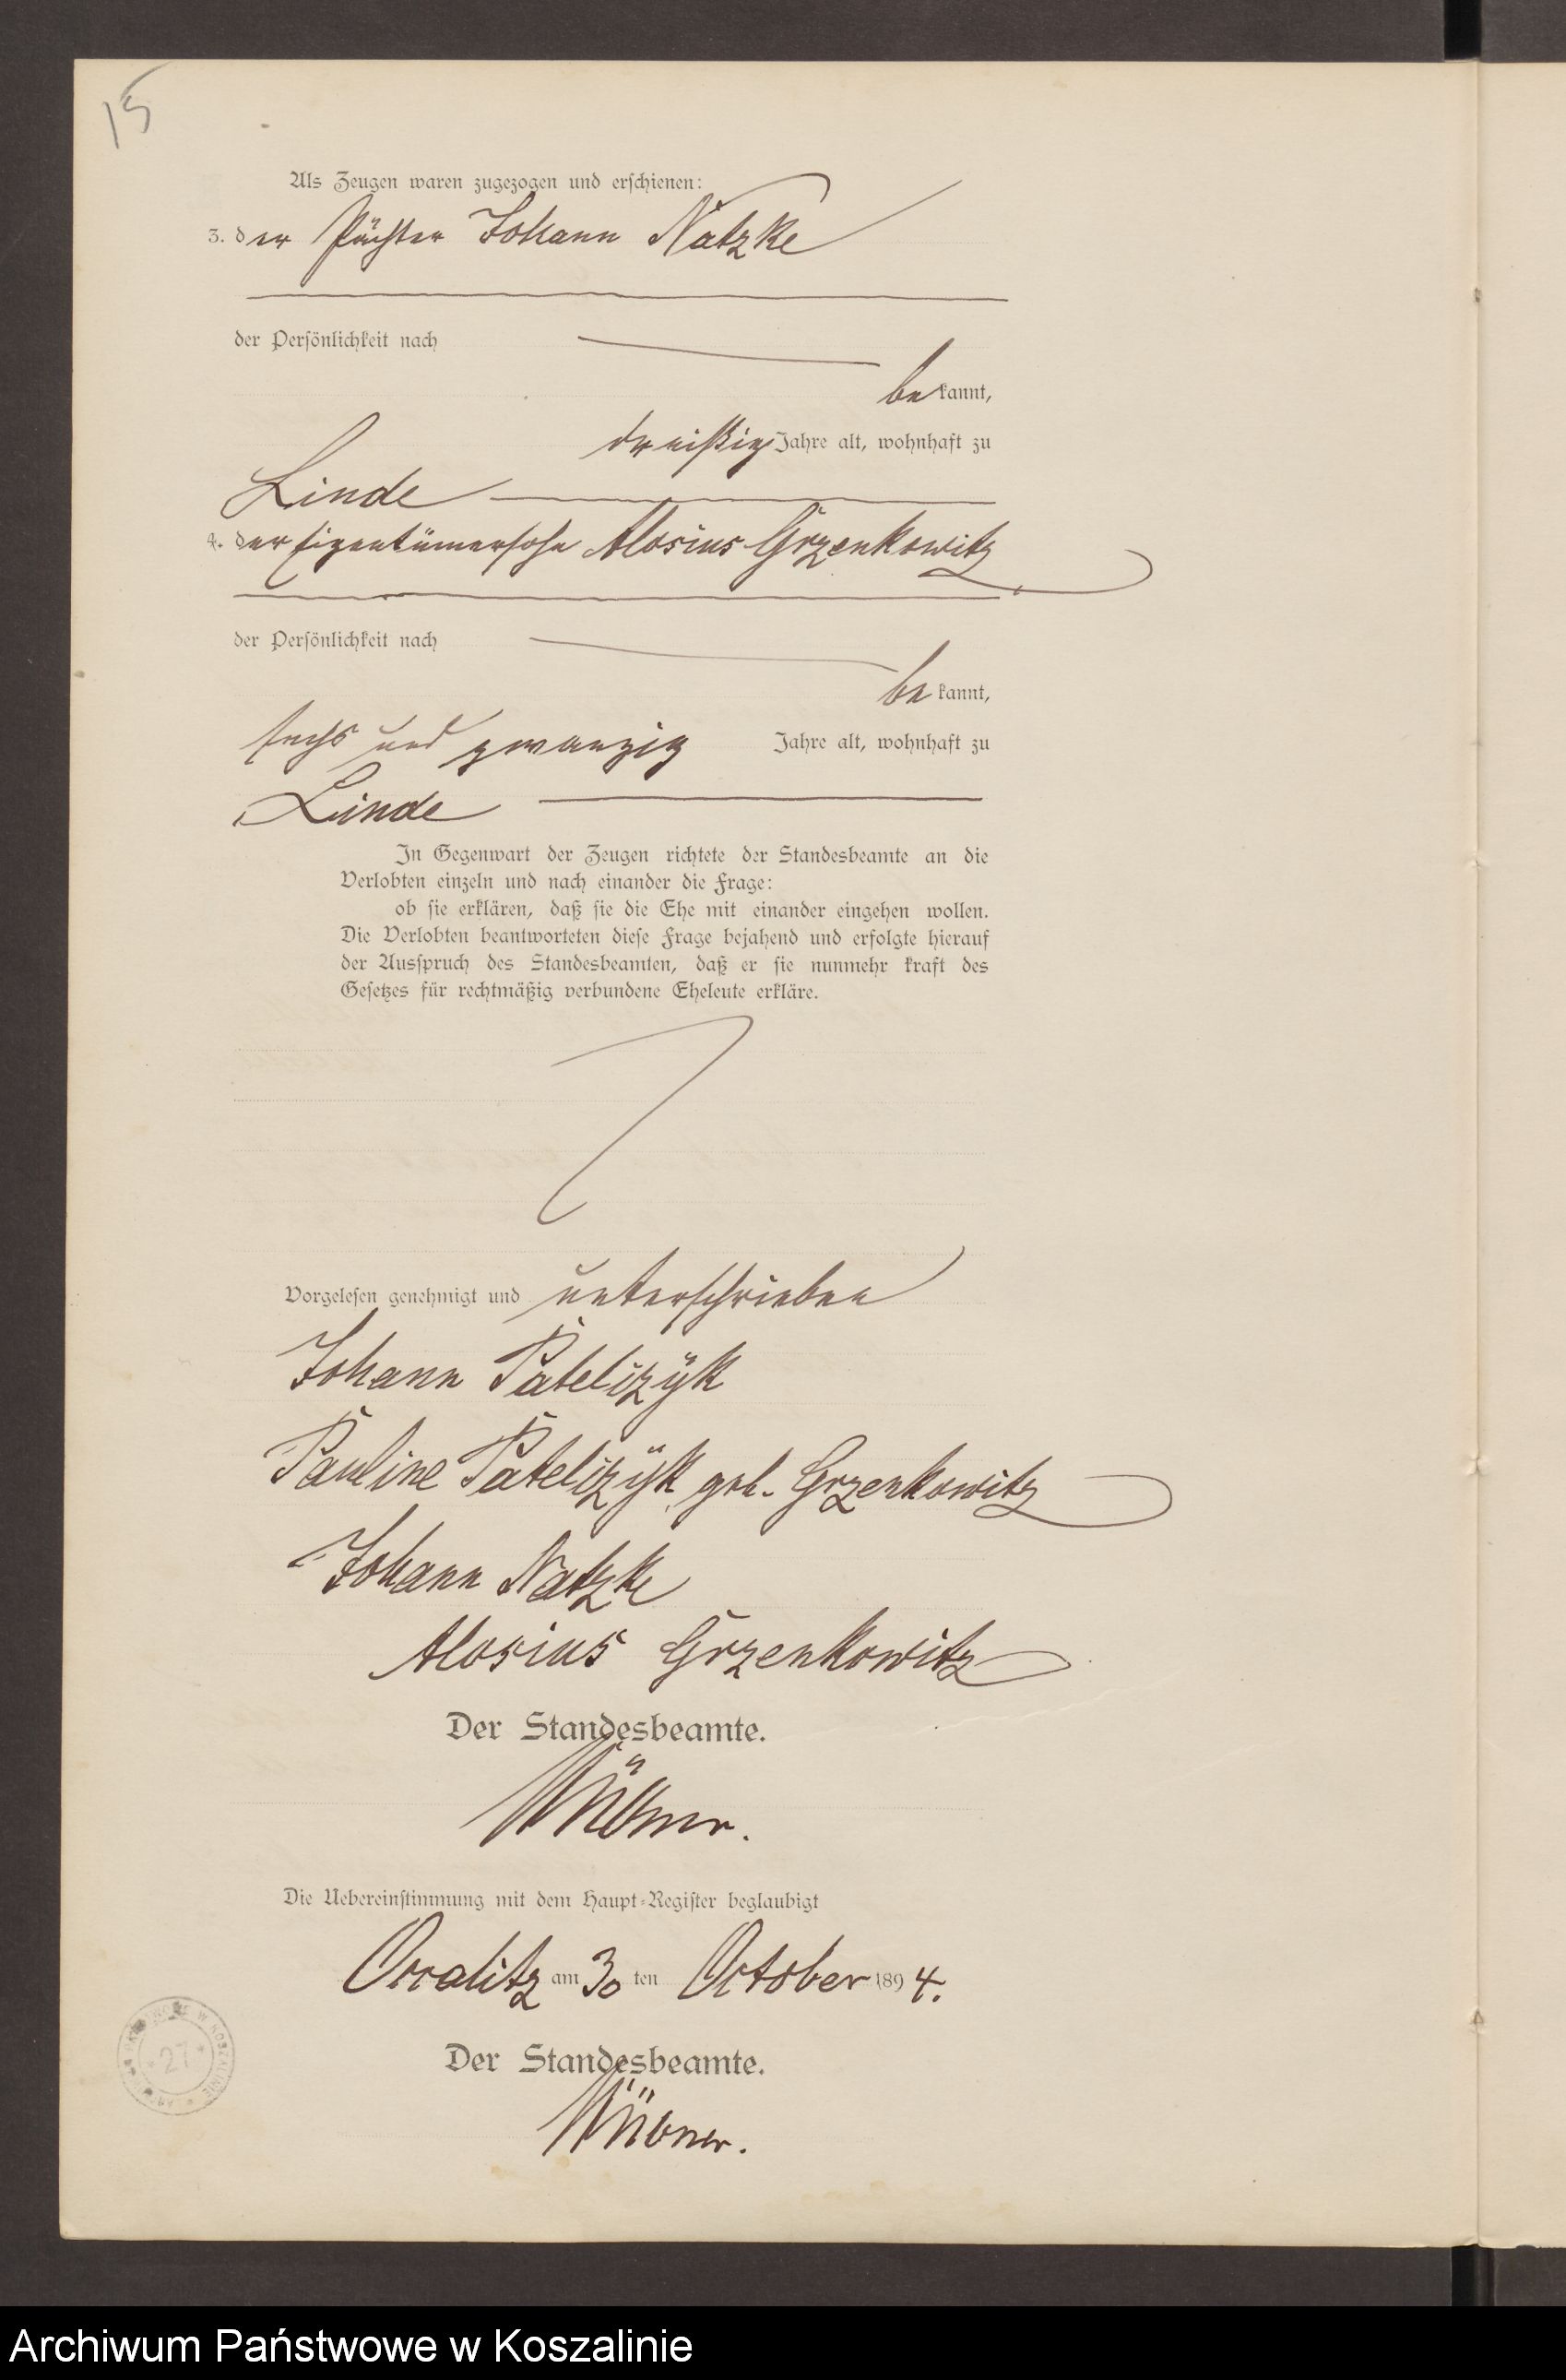 15
Als Zeugen waren zugezogen und erschienen:
3. der Pächter Johann Natzke
der Persönlichkeit nach
bekannt,
dreißig Jahre alt, wohnhaft zu
Linde
4. der Eigentümersohn Alosius Grzenkowitz
der Persönlichkeit nach
bekannt,
sechs und zwanzig Jahre alt, wohnhaft zu
Linde
In Gegenwart der Zeugen richtete der Standesbeamte an die
Verlobten einzeln und nach einander die Frage:
ob sie erklären, daß sie die Ehe mit einander eingehen wollen.
Die Verlobten beantworteten diese Frage bejahend und erfolgte hierauf
der Ausspruch des Standesbeamten, daß er sie nunmehr kraft des
Gesetzes für rechtmäßig verbundene Eheleute erkläre.
Vorgelesen genehmigt und unterschrieben
Johann
Pauline geb. Grzenkowitz
Johann Natzke
Alosius Grzenkowitz
Der Standesbeamte.
Die Uebereinstimmung mit dem Haupt-Register beglaubigt
am 30 ten October 1894.
Der Standesbeamte.
27
Archiwum Państwowe w Koszalinie